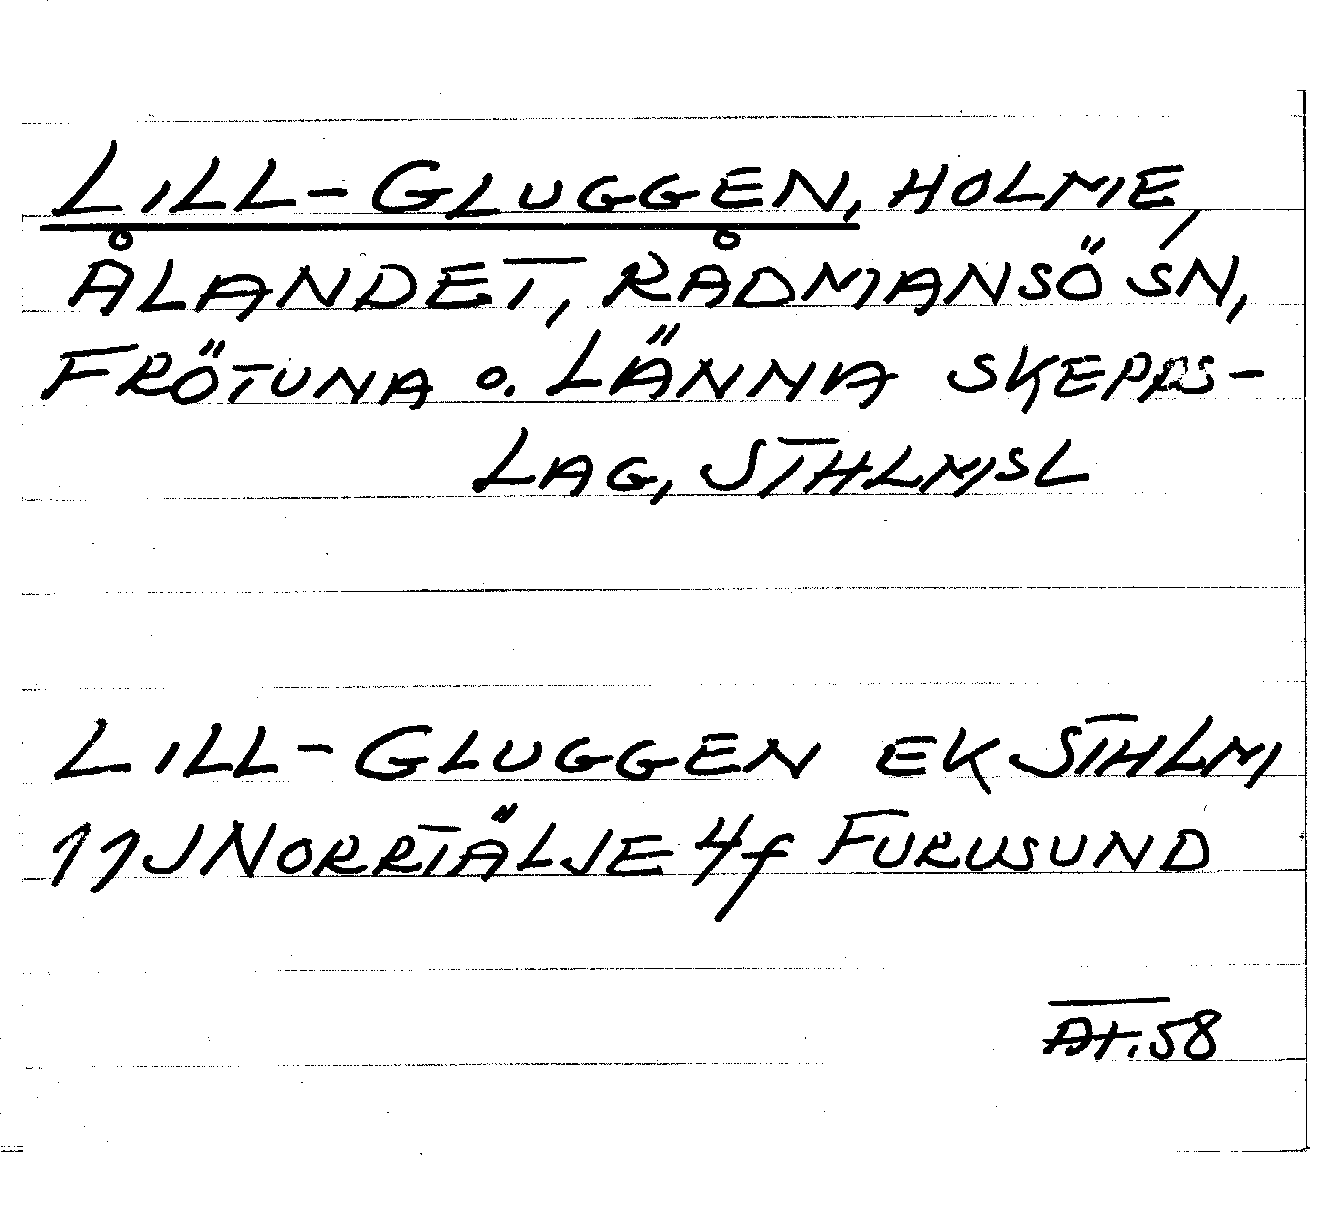 LILL-GLUGGEN, HOLME,
ÅLANDET, RÅDMANSÖ SN,
FRÖTUNA o. LÄNNA SKEPPS-
LAG, STHLMSL
LILL-GLUGGEN EK STHLM
11J NORRTÄLJE 4f FURUSUND
At.58